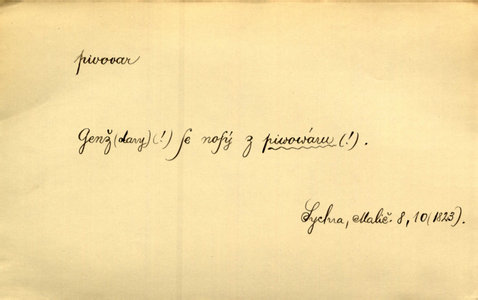 pivovar
Genž (dary) (!) se nosý z piwowáru (!).
Sychra, Malič. 8, 10 (1823).